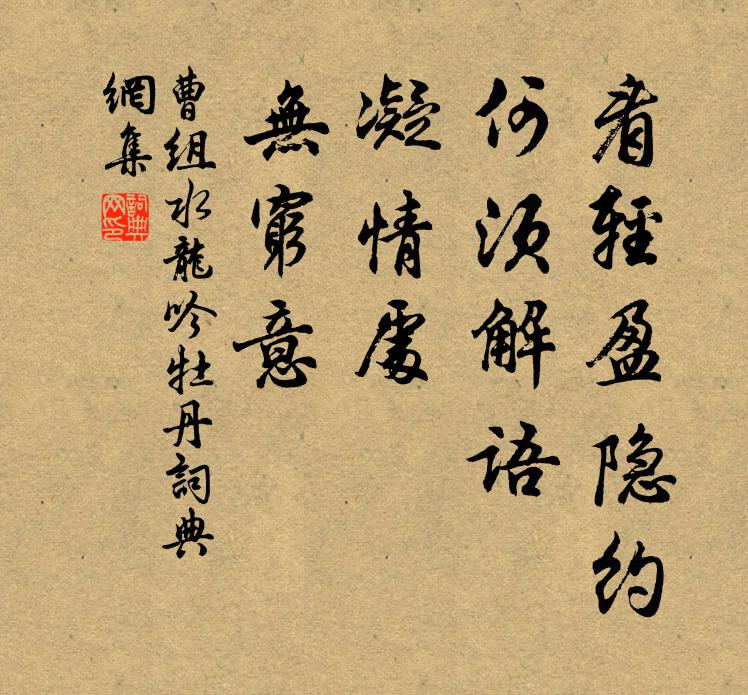 看輕盈隐約
何須解語
凝情處
無窮意
曹組水龍吟牡丹詞典
網集
詞典網印